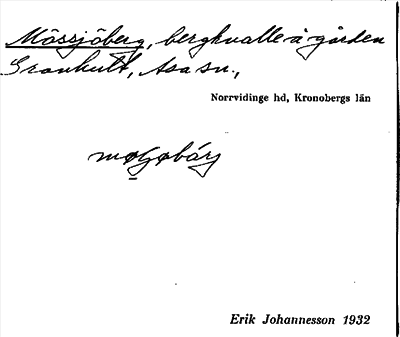 Mössjöberg, bergkulle å gården
Grankult, Asa sn.,
Norrvidinge hd, Kronobergs län
Erik Johannesson 1932